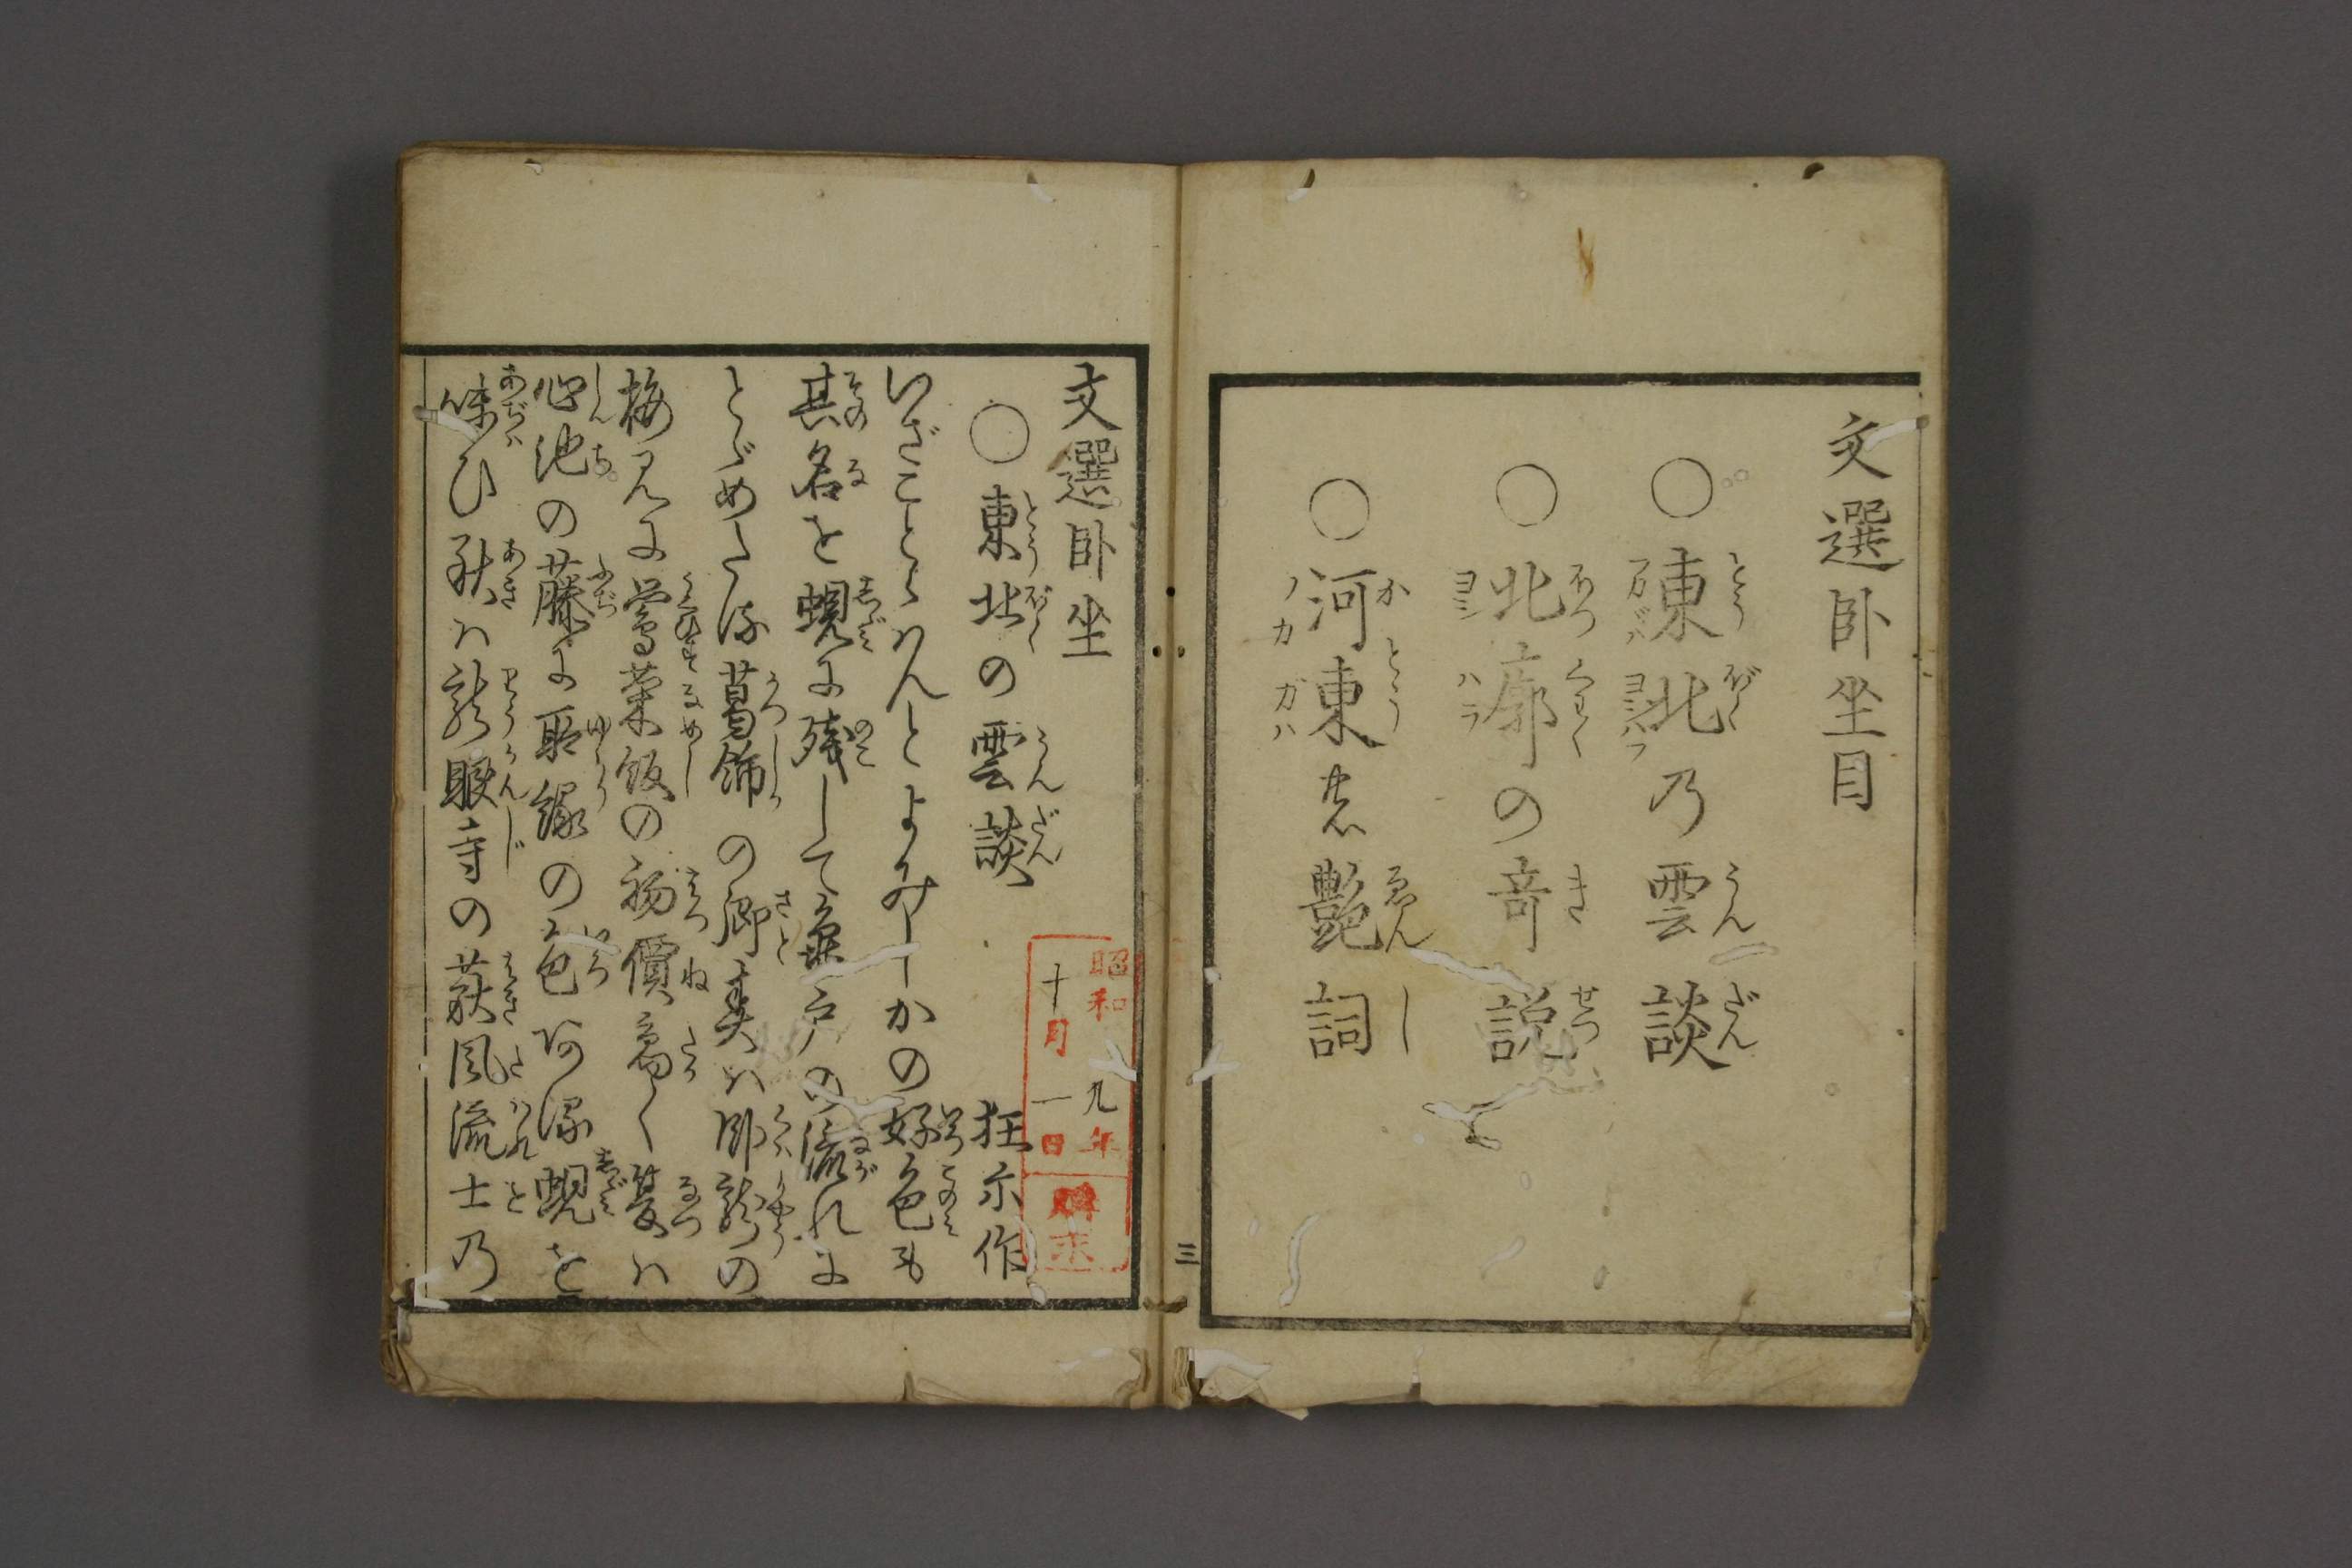 文選臥坐目
○東北乃雲談
○北廓の竒説
○河東の艶詞
三
文選臥坐
○東北の雲談
狂示作
いざことゝはんとよみしかの好色も
其名を蜆に残して亀戸の流れに
とゞめたる葛飾の郷春は臥龍の
梅見に鶯菜飯の初價高く夏は
心池の藤に取縁の色深蜆を
味ひ秋は龍眼寺の萩風流士乃
昭和九年
十月一日
購求